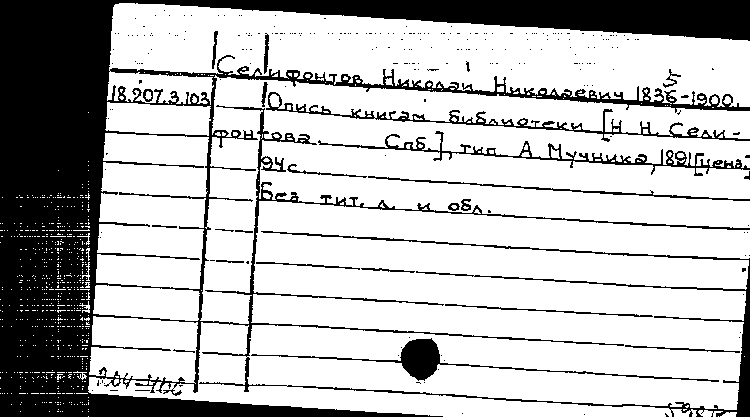 Селифонтов, Николай Николаевич, 1835-1900.
18.207.3.103 Опись книгам библиотеки [Н. Н. Сели-
фонтова. Спб.], тип. А. Мучника, 1891 [ценз.]
94 с.
Без тит. л. и обл.
204-400